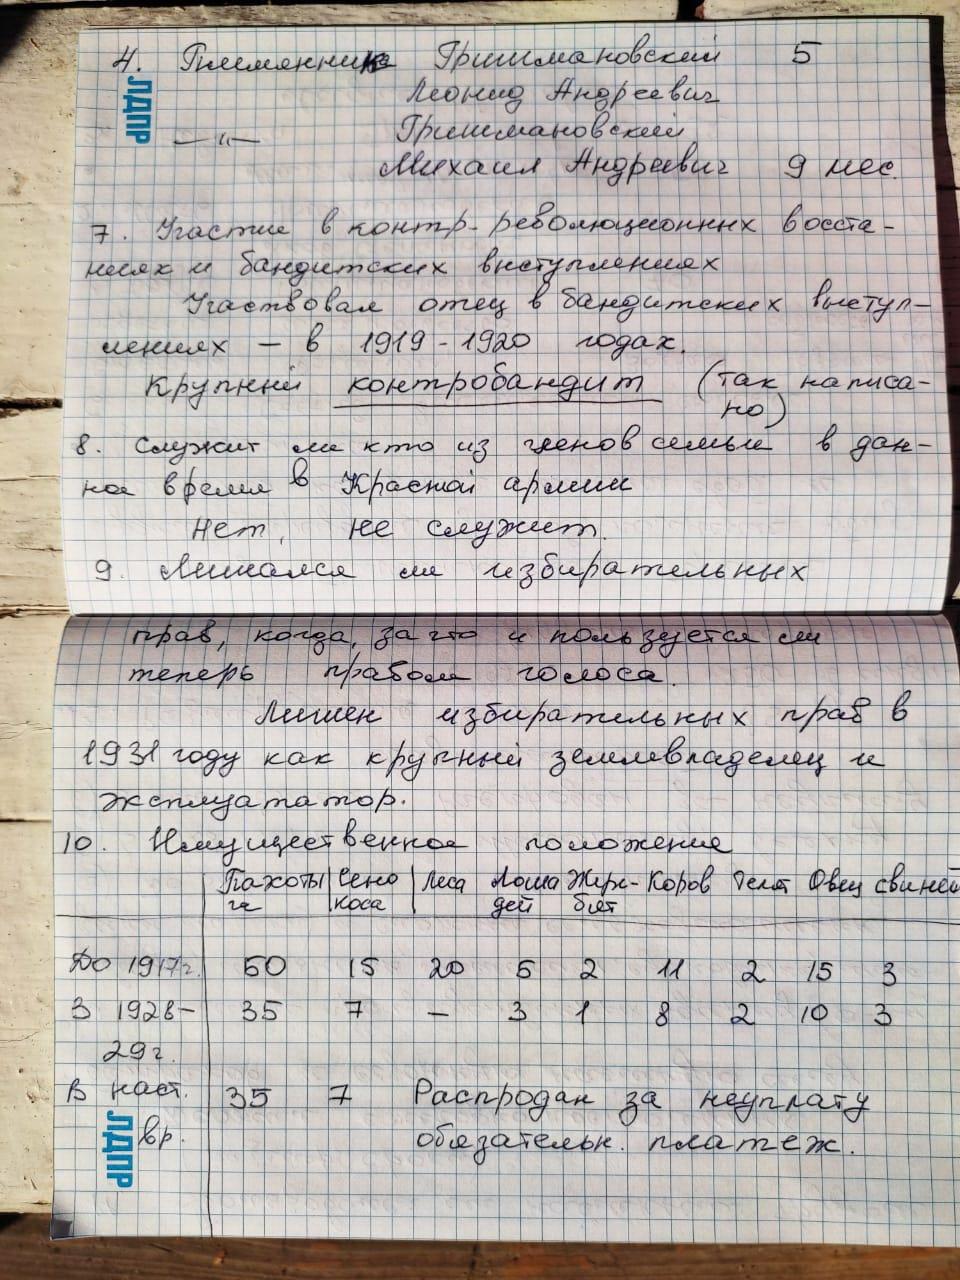 4. Племянника Гришмановский 5
Леонид Андреевич
ЛДПР
—"— Гришмановский
Михаил Андреевич 9 мес.
7. Участие в контр-революционных восста-
ниях и бандитских выступлениях
Участвовал отец в бандитских выступ-
лениях — в 1919-1920 годах.
Крупный контробандит (так написа-
но)
8. Служит ли кто из членов семьи в дан-
ное время в Красной армии
Нет, не служит.
9. Лишался ли избирательных
прав, когда, за что и пользуется ли
теперь правом голоса.
Лишен избирательных прав в
1931 году как крупный землевладелец и
эксплуататор.
10. Имущественное положение
Пахоты Сено Леса Лоша Жере- Коров Телят Овец Свиней
га коса дей бят
До 1917г. 50 15 20 5 2 11 2 15 3
З 1928- 35 7 — 3 1 8 2 10 3
29г.
В наст. 35 7 Распродан за неуплату
вр. обязательн. платеж.
ЛДПР